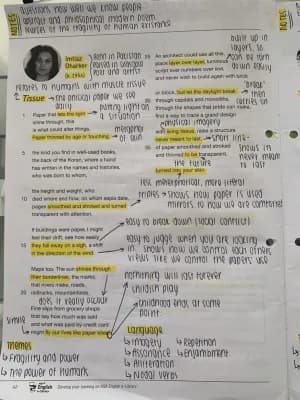 NOTES
questions how well we know people
abstract and philosophical modern poem
NOTES
Imtiaz
Dharker
(b.1954)
Born in Pakistan
Raised in Glasgow
Poet and artist
relates to humans with muscle tissue
Tissue
the physical paper we see
daily
putting light on
a situation
Paper that lets the light
shine through, this
is what could alter things.
Paper thinned by age or touching,
of skin
5 the kind you find in well-used books,
the back of the Koran, where a hand
has written in the names and histories,
who was born to whom,
the height and weight, who
10 died where and how, on which sepia date,
pages smoothed and stroked and turned
transparent with attention.
If buildings were paper, I might
feel their drift, see how easily
15 they fall away on a sigh, a shift
in the direction of the wind.
Maps too. The sun shines through
their borderlines, the marks
that rivers make, roads,
20 railtracks, mountainfolds,
does it really occur
Fine slips from grocery shops
that say how much was sold
and what was paid by credit card
simile
might fly our lives like paper kites.
built up in
layers, so
can be torn
down easily
25 An architect could use all this,
place layer over layer, luminous
script over numbers over line,
and never wish to build again with brick
or block, but let the daylight break
"break"
30 through capitals and monoliths,
through the shapes that pride can make,
find a way to trace a grand design
physical imagery
with living tissue, raise a structure
never meant to last,
short line
35 of paper smoothed and stroked
and thinned to be transparent,
shows its
never meant
to last
the future
turned into your skin.
less metaphorical, more literal
triples → shows how paper is used
mirrors to how we are comforted
easy to break down (local conflict)
easy to judge when you are looking
in. shows how we control each others
views like we control the papers use
nothing will last forever
childish play
childhood ends at some
point.
Themes
↳ Fragility and power
↳ The power of humans
Language
↳ Imagery
↳ Assonance
↳ Alliteration
↳ Modal verbs
↳ Repetition
↳ enjambment
42
English